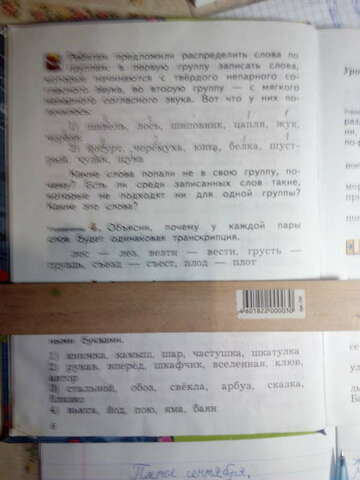 Ребятам предложили распределить слова по
группам: в первую группу записать слова,
которые начинаются с твёрдого непарного со-
гласного звука, во вторую группу — с мягкого
непарного согласного звука. Вот что у них по-
лучилось:
1) щавель, лось, шиповник, цапля, жук,
2) йогурт, черёмуха, юнга, белка, шуст-
рый, чулан, щука
Какие слова попали не в свою группу, по-
чему? Есть ли среди записанных слов такие,
которые не подходят ни для одной группы?
Какие это слова?
Упражнение 4. Объясни, почему у каждой пары
слов будет одинаковая транскрипция.
лес — лез, везти — вести, грусть —
груздь, съезд — съест, плод — плот
4601822000010
ными буквами.
1) книжка, камыш, шар, частушка, шкатулка
2) ружьё, вперёд, шкафчик, вселенная, клюв,
3) стальной, обоз, свёкла, арбуз, сказка,
близко
4) вьюга, йод, пою, яма, баян
6
сентября,